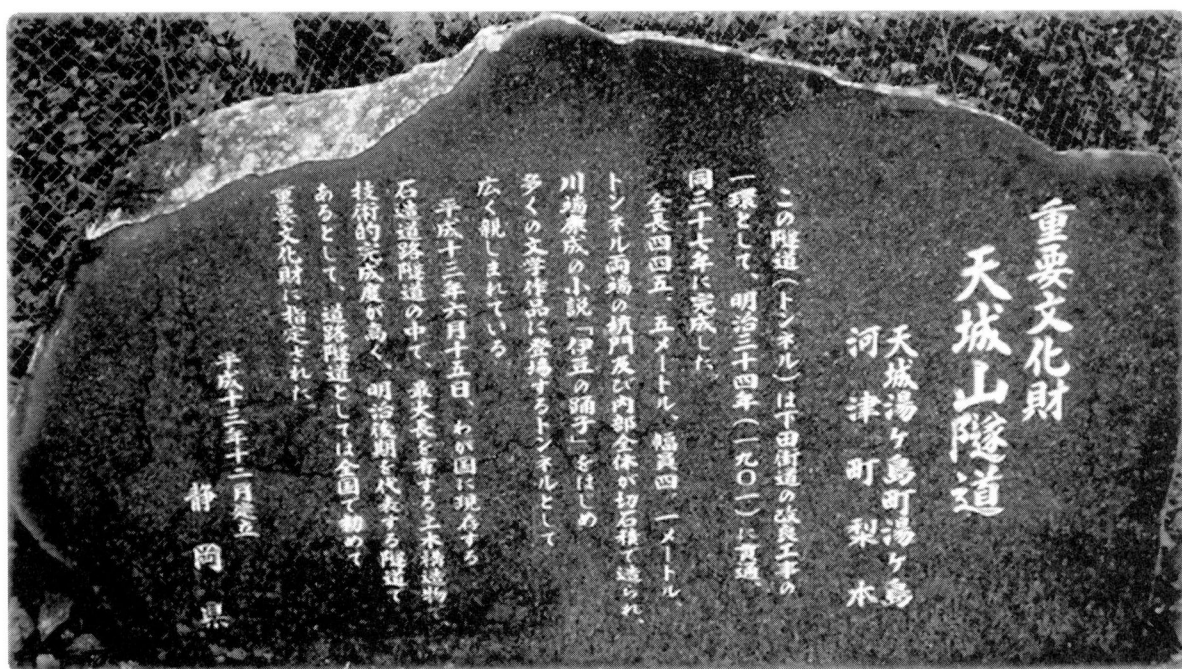 重要文化財
天城山隧道
天城湯ヶ島町湯ヶ島
河津町梨本
この隧道(トンネル)は下田街道の改良工事の
一環として、明治三十四年(一九〇一)に貫通、
同三十七年に完成した。
全長四四五、五メートル、幅員四、一メートル、
トンネル両端の坑門及び内部全体が切石積で造られ、
川端康成の小説「伊豆の踊子」をはじめ
多くの文学作品に登場するトンネルとして
広く親しまれている
平成十三年六月十五日、わが国に現存する
石造道路隧道の中で、最大長を有する土木構造物、
技術的完成度が高く、明治後期を代表する隧道で
あるとして、道路隧道としては全国で初めて
重要文化財に指定された。
平成十三年十二月建立
静岡県